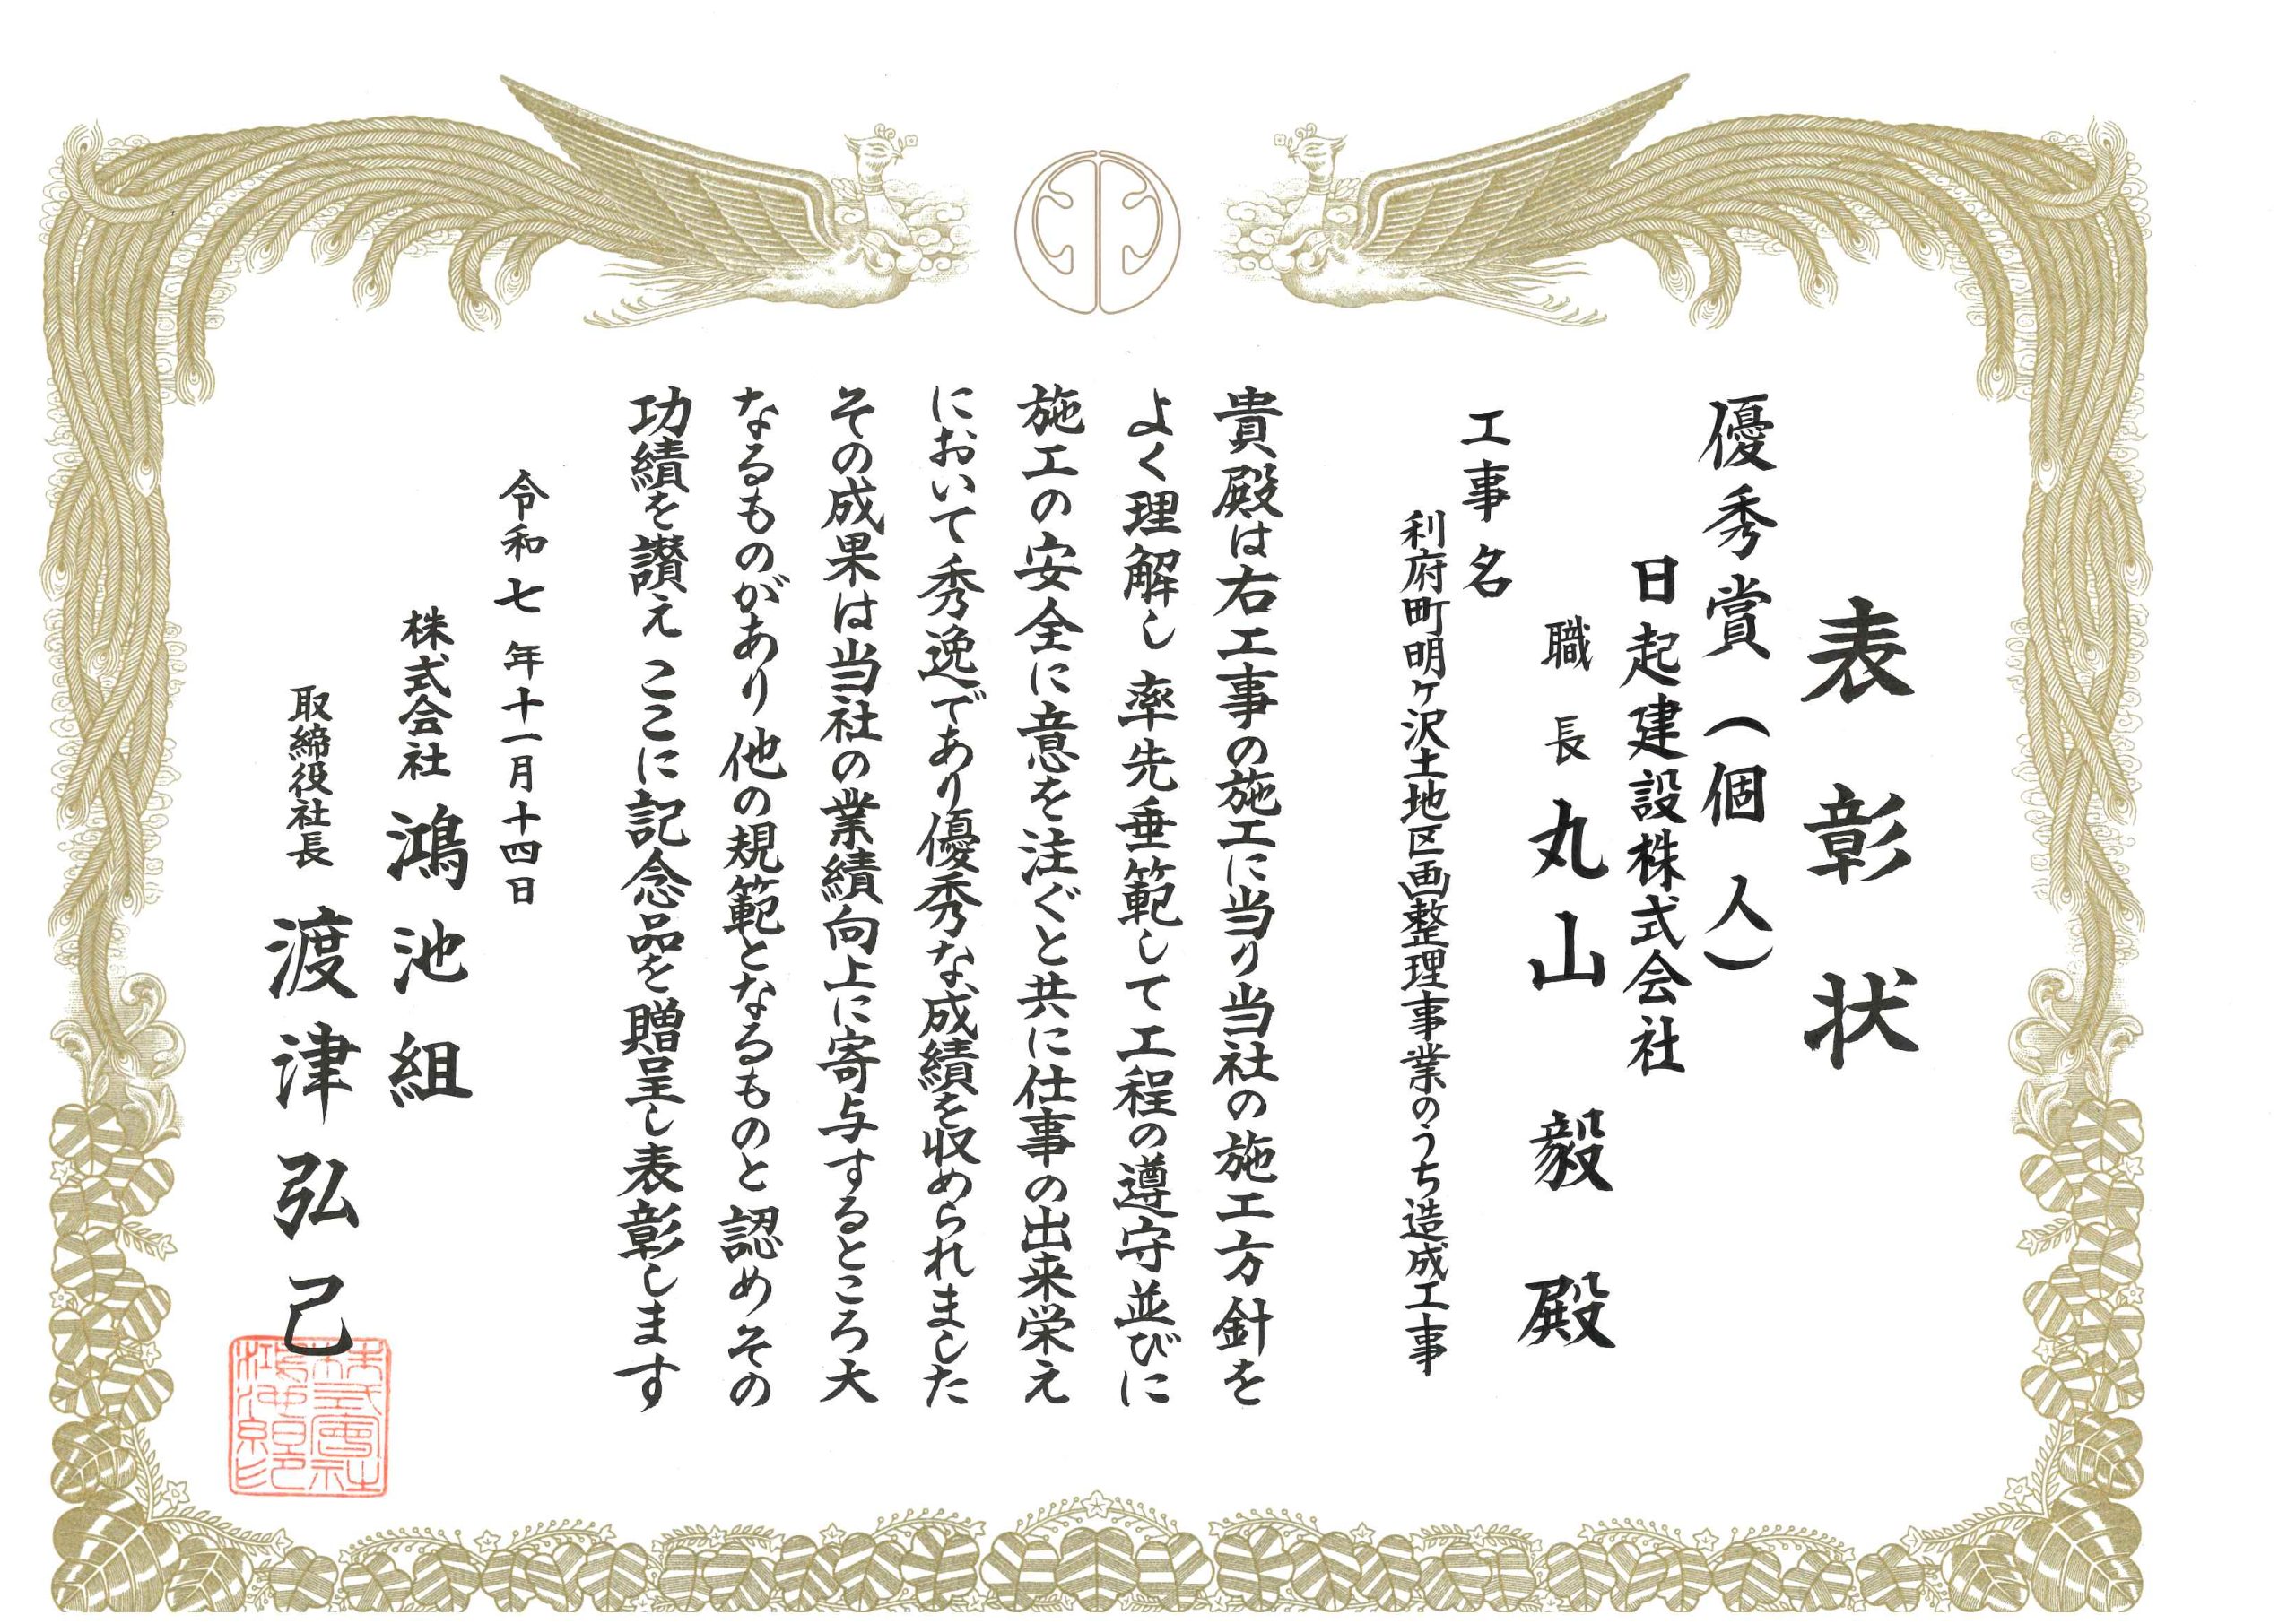 表彰状
優秀賞（個人）
日起建設株式会社
職長 丸山 毅 殿
工事名
利府町明ケ沢土地区画整理事業のうち造成工事
貴殿は右工事の施工に当り当社の施工方針を
よく理解し 率先垂範して工程の遵守並びに
施工の安全に意を注ぐと共に仕事の出来栄え
において秀逸であり優秀な成績を収められました
その成果は当社の業績向上に寄与するところ大
なるものがあり 他の規範となるものと認めその
功績を讃え ここに記念品を贈呈し表彰します
令和七年十一月十四日
株式会社 鴻池組
取締役社長 渡津弘己
株式會社
鴻池組印